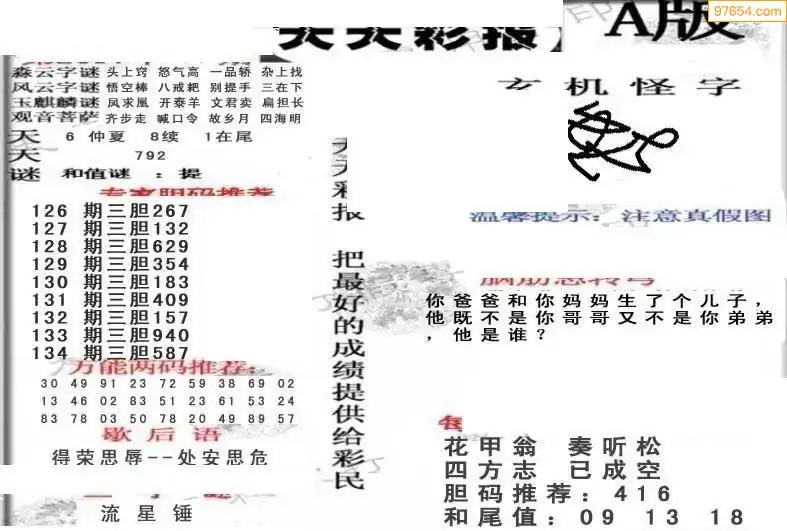 97654.com
天天彩报
A版
森云字谜 头上窍 怒气高 一品轿 杂上找
风云字谜 悟空棒 八戒耙 别提手 三在下
玉麒麟谜 凤求凰 开泰羊 文君卖 扁担长
观音菩萨 齐步走 喊口令 故乡月 四海明
天 6 仲夏 8续 1在尾
天 792
谜 和值谜 : 提
专家胆码推荐
126 期三胆267
127 期三胆132
128 期三胆629
129 期三胆354
130 期三胆183
131 期三胆409
132 期三胆157
133 期三胆940
134 期三胆587
万能两码推荐:
30 49 91 23 72 59 38 69 02
13 46 02 83 51 23 61 53 24
83 78 03 50 78 20 49 89 57
歇后语
得荣思辱--处安思危
流星锤
天天彩报 把最好的成绩提供给彩民
玄机怪字
温馨提示: 注意真假图
脑筋急转弯
你爸爸和你妈妈生了个儿子，
他既不是你哥哥又不是你弟弟
，他是谁？
花甲翁 奏听松
四方志 已成空
胆码推荐: 416
和尾值: 09 13 18